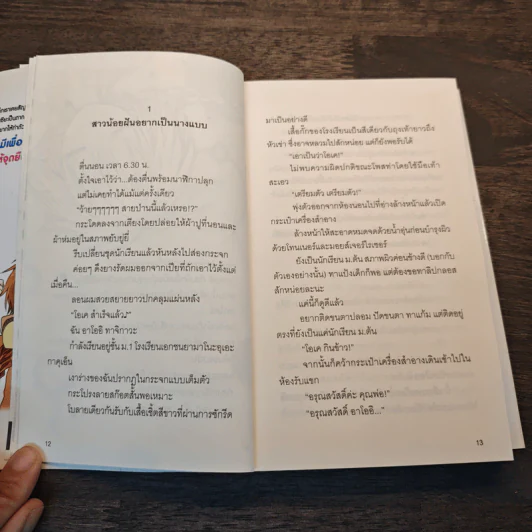 1
สาวน้อยฝันอยากเป็นนางแบบ
ตื่นนอน เวลา 6.30 น.
ตั้งใจเอาไว้ว่า...ต้องตื่นพร้อมนาฬิกาปลุก
แต่ไม่เคยทำได้แม้แต่ครั้งเดียว
"ว้ายๆๆๆๆๆๆ สายป่านนี้แล้วเหรอ!?"
กระโดดลงจากเตียงโดยปล่อยให้ผ้าปูที่นอนและ
ผ้าห่มอยู่ในสภาพยับยู่ยี่
รีบเปลี่ยนชุดนักเรียนแล้วหันหลังไปส่องกระจก
ค่อยๆ ดึงยางรัดผมออกจากเปียที่ถักเอาไว้ตั้งแต่
เมื่อคืน...
ลอนผมสวยสยายยาวปกคลุมแผ่นหลัง
"โอเค สำเร็จแล้ว♪"
ฉัน อาโออิ ทาจิกาวะ
กำลังเรียนอยู่ชั้น ม.1 โรงเรียนเอกชนยามาโนะอุเอะ
กาคุเอ็น
เงาร่างของฉันปรากฏในกระจกแบบเต็มตัว
กระโปรงลายสก๊อตสั้นพอเหมาะ
โบลายเดียวกันรับกับเสื้อเชิ้ตสีขาวที่ผ่านการซักรีด
12
มาเป็นอย่างดี
เสื้อกั๊กของโรงเรียนเป็นสีเดียวกับถุงเท้ายาวถึง
หัวเข่า ซึ่งอาจหลวมไปสักหน่อย แต่ก็ยังพอรับได้
"เอาเป็นว่าโอเค!"
ไม่พบความผิดปกติขณะโพสท่าโดยใช้มือเท้า
สะเอว
"เตรียมตัว เตรียมตัว!"
พุ่งตัวออกจากห้องนอนไปที่อ่างล้างหน้าแล้วเปิด
กระเป๋าเครื่องสำอาง
ล้างหน้าให้สะอาดหมดจดด้วยน้ำอุ่นก่อนบำรุงผิว
ด้วยโทนเนอร์และมอยส์เจอร์ไรเซอร์
ยังเป็นนักเรียน ม.ต้น สภาพผิวค่อนข้างดี (บอกกับ
ตัวเองอย่างนั้น) ทาแป้งเด็กก็พอ แต่ต้องขอทาลิปกลอส
สักหน่อยละนะ
แค่นี้ก็ดูดีแล้ว
อยากติดขนตาปลอม ปัดขนตา ทาแก้ม แต่ติดอยู่
ตรงที่ยังเป็นแค่นักเรียน ม.ต้น
"โอเค กินข้าว!"
จากนั้นก็คว้ากระเป๋าเครื่องสำอางเดินเข้าไปใน
ห้องรับแขก
"อรุณสวัสดิ์ค่ะ คุณพ่อ!"
"อรุณสวัสดิ์ อาโออิ..."
13